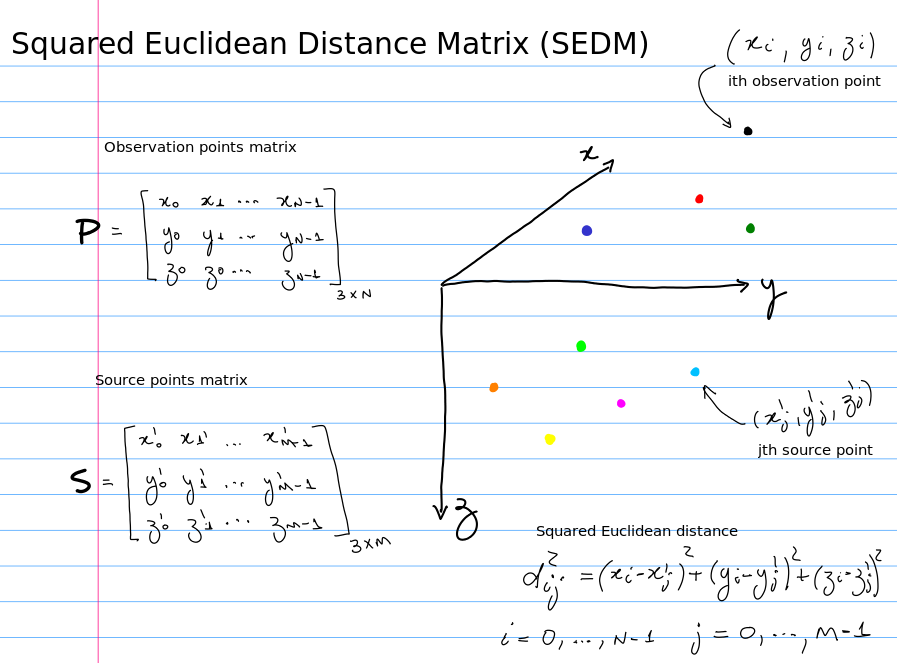 Squared Euclidean Distance Matrix (SEDM)
(xi, yi, zi)
ith observation point
Observation points matrix
x
P = [ x0 x1 ... xN-1
y0 y1 ... yN-1
z0 z0 ... zN-1 ] 3×N
y
Source points matrix
(x'j, y'j, z'j)
jth source point
S = [ x'0 x1' ... x'M-1
y'0 y'1 ... y'M-1
z'0 z'1 ... zM-1 ] 3×M
z
Squared Euclidean distance
d²ij = (xi-x'j)² + (yi-y'j)² + (zi-z'j)²
i = 0, ..., N-1 j = 0, ..., M-1